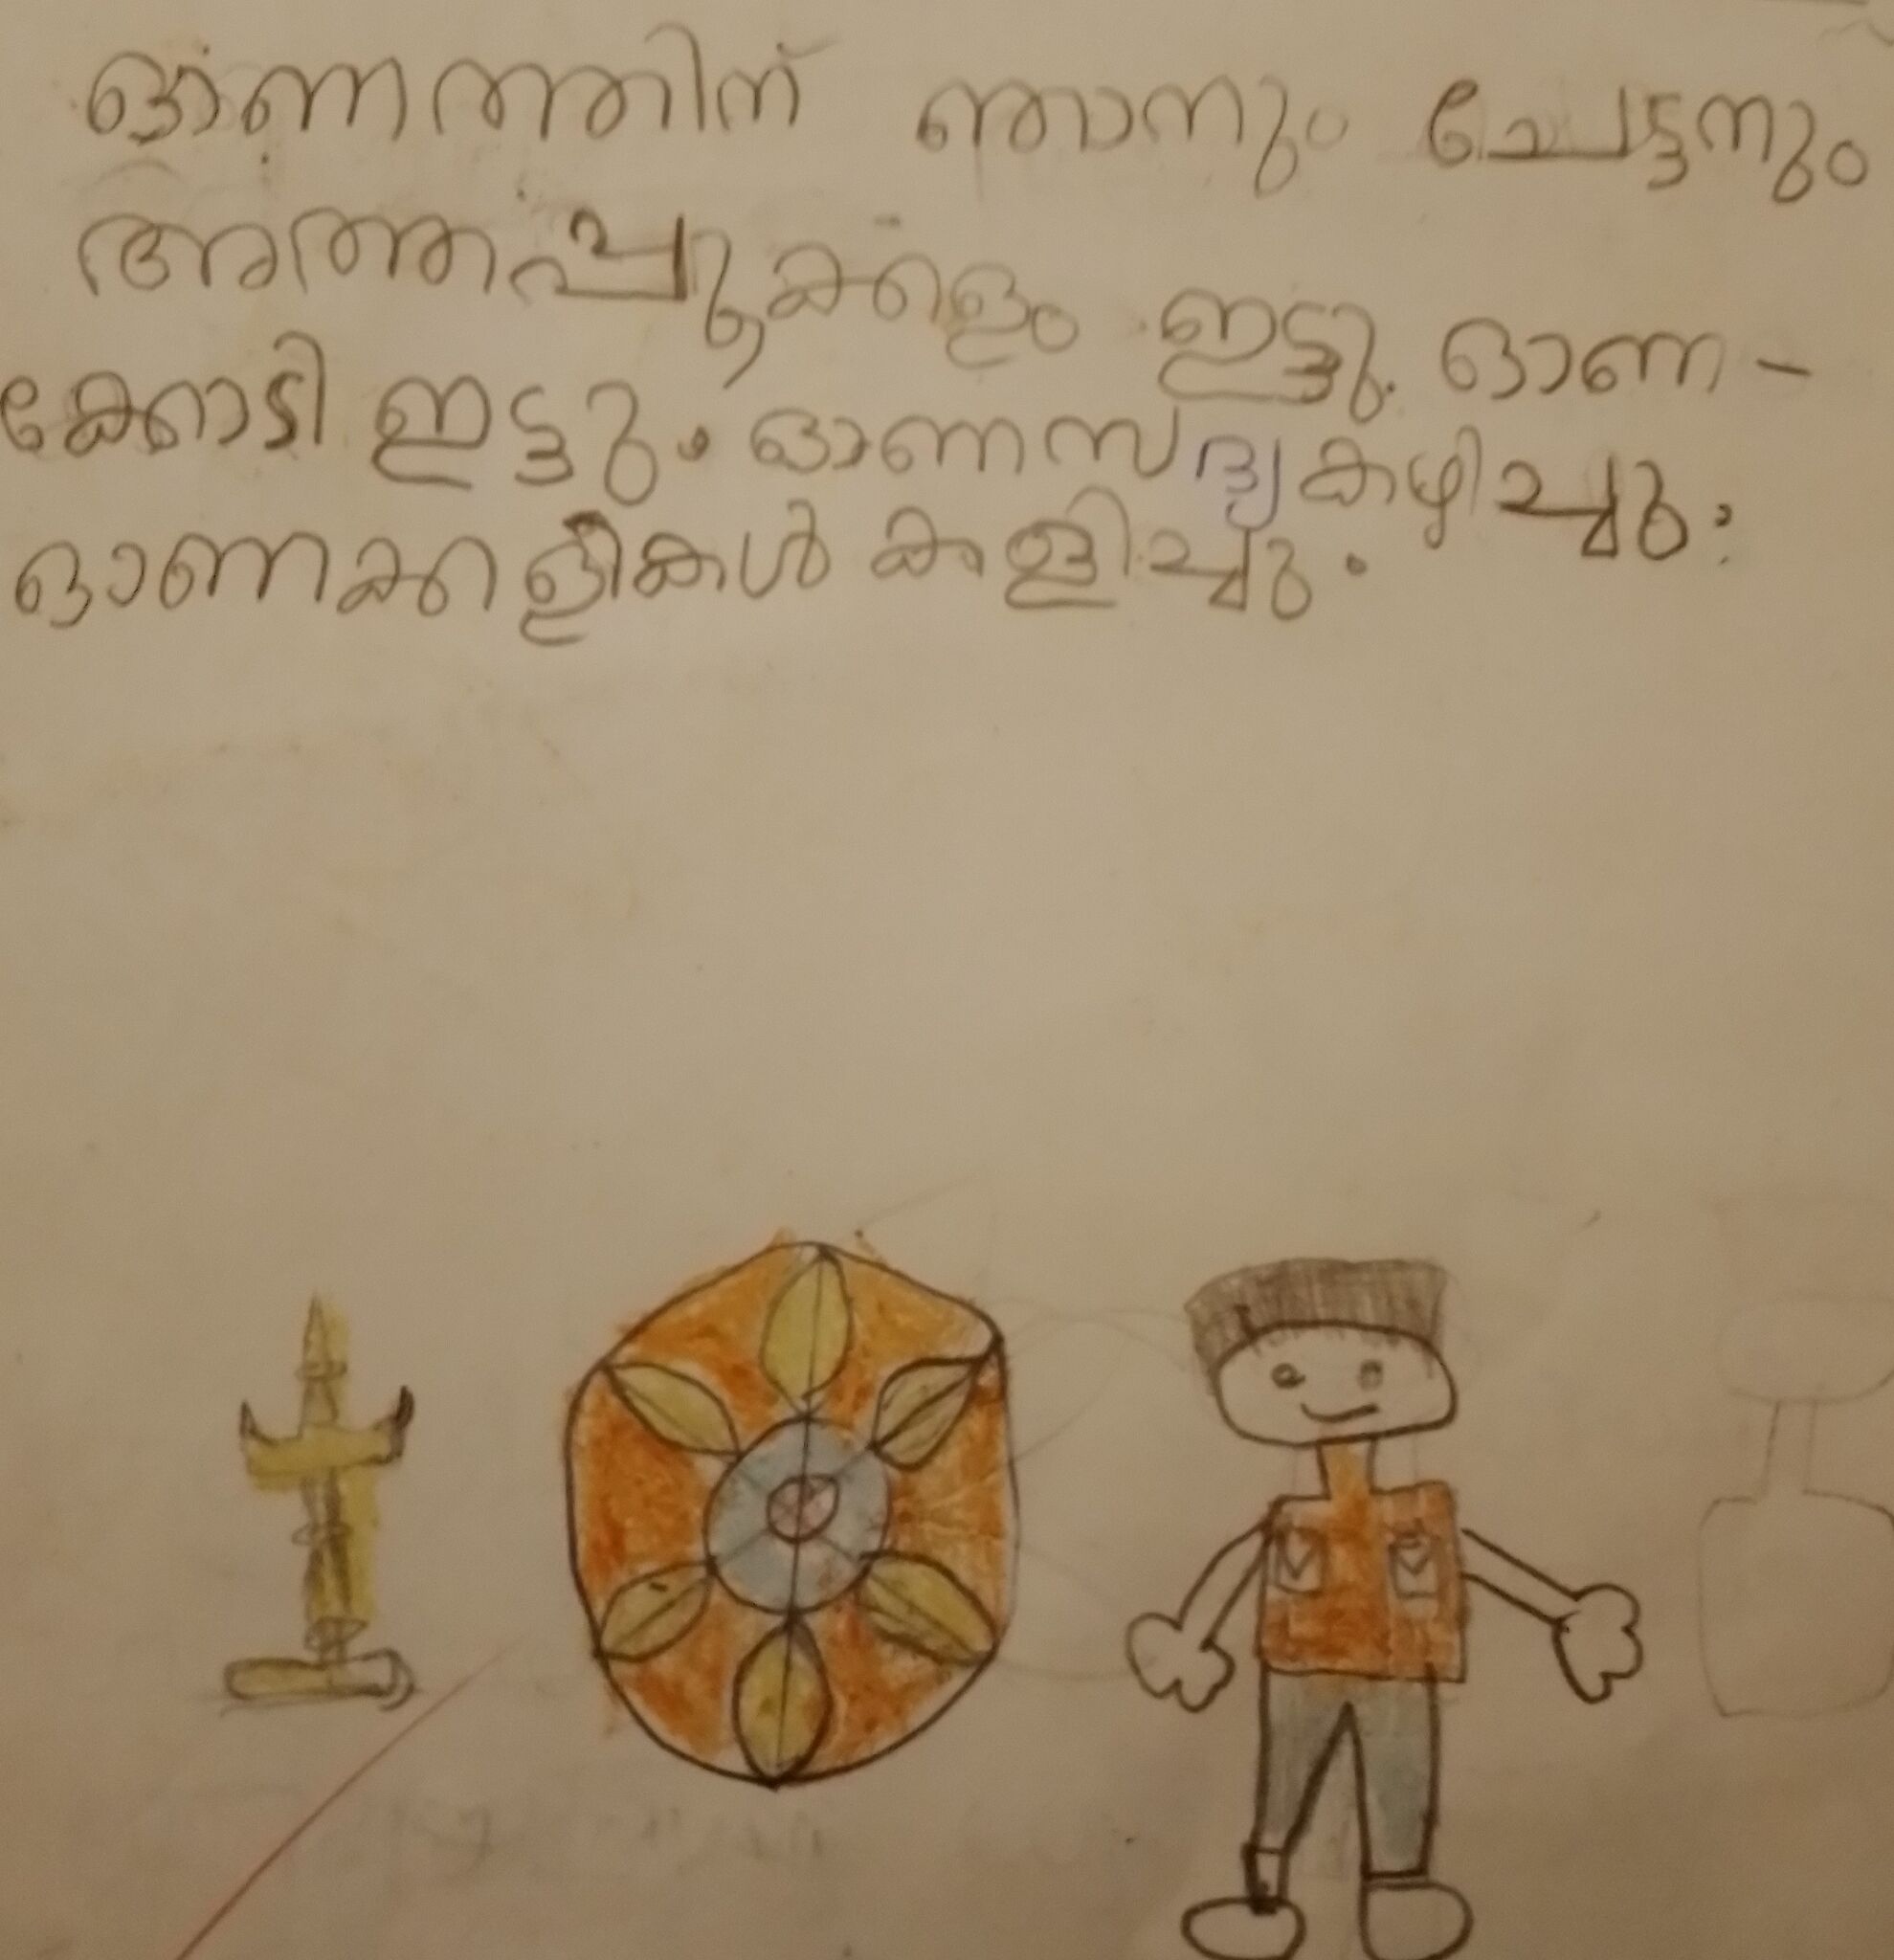 ഓണത്തിന് ഞാനും ചേട്ടനും
അത്തപ്പൂക്കളം ഇട്ടു. ഓണ-
ക്കോടി ഇട്ടു. ഓണസദ്യ കഴിച്ചു.
ഓണക്കളികൾ കളിച്ചു.